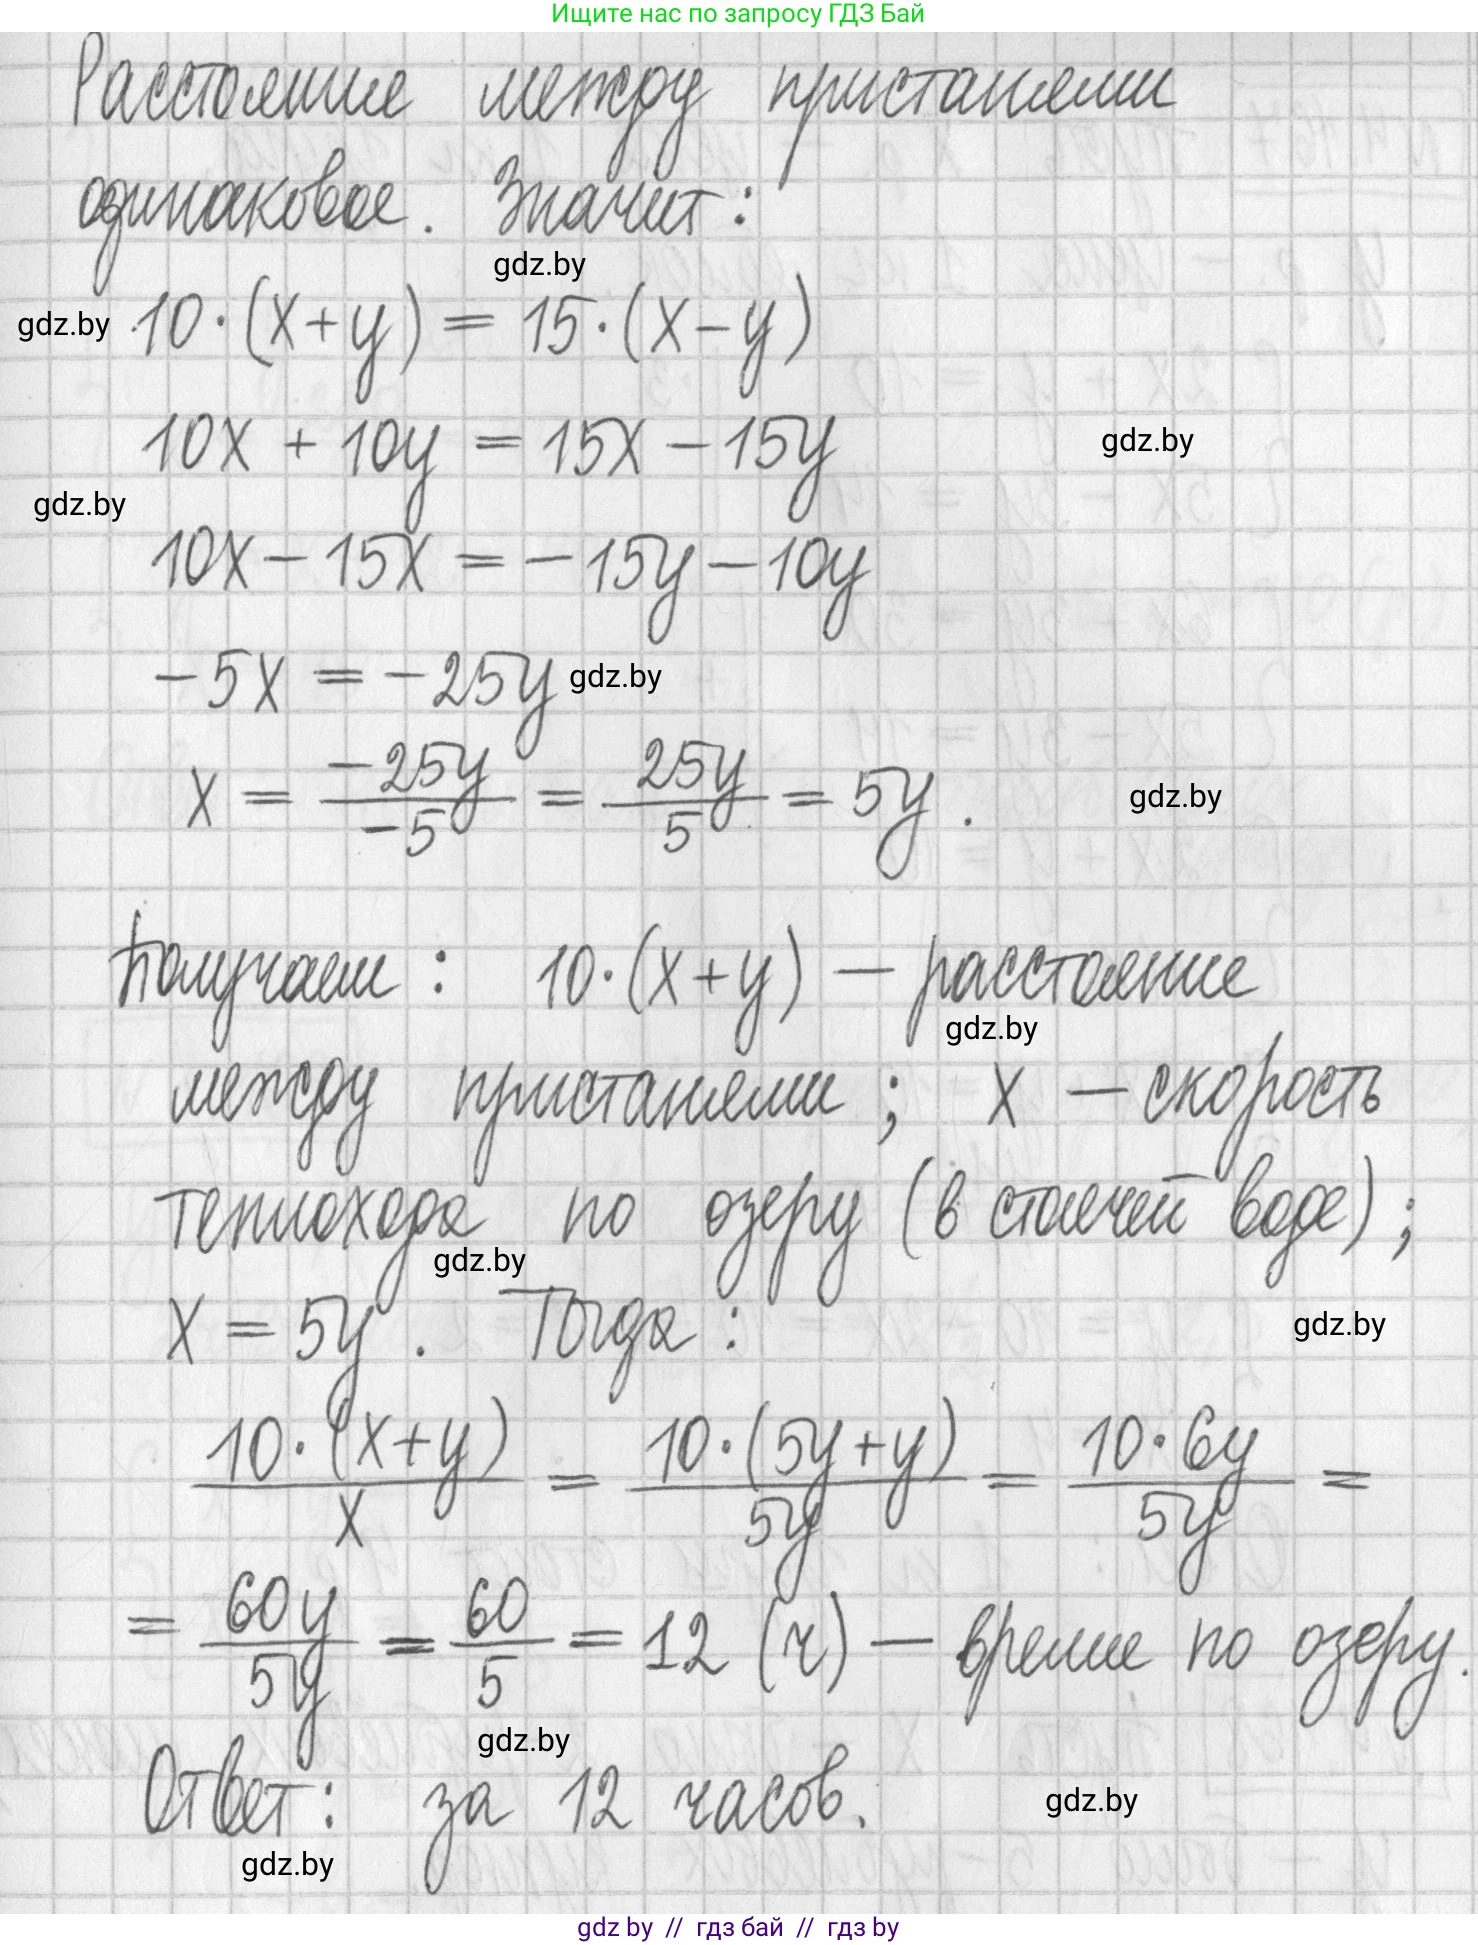 Ищите нас по запросу ГДЗ Бай
Расстояние между пристанями
одинаковое. Значит:
gdz.by
gdz.by
10·(x+y) = 15·(x-y)
10x + 10y = 15x - 15y
gdz.by
gdz.by
10x - 15x = -15y - 10y
-5x = -25y
gdz.by
x = -25y/-5 = 25y/5 = 5y.
gdz.by
Получаем: 10·(x+y) — расстояние
gdz.by
между пристанями; x — скорость
теплохода по озеру (в стоячей воде);
gdz.by
x = 5y. Тогда:
gdz.by
10·(x+y)/x = 10·(5y+y)/5y = 10·6y/5y =
= 60y/5y = 60/5 = 12 (ч) — время по озеру.
gdz.by
Ответ: за 12 часов.
gdz.by
gdz.by
gdz by // гдз бай // гдз by